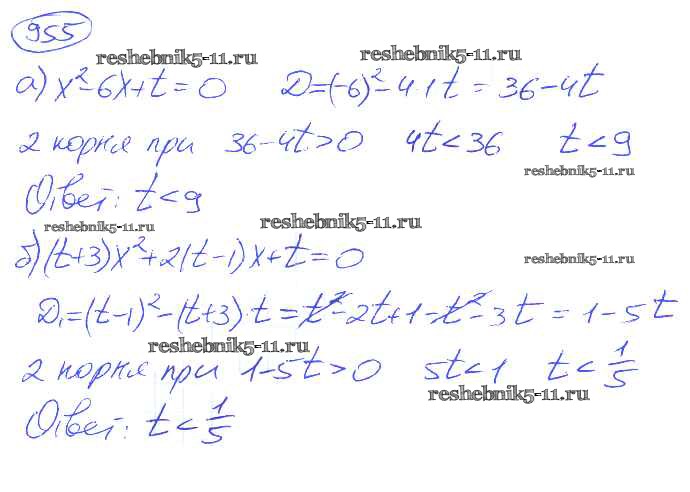 955
reshebnik5-11.ru reshebnik5-11.ru
а) x²-6x+t=0 D=(-6)²-4·1·t=36-4t
2 корня при 36-4t>0 4t<36 t<9
reshebnik5-11.ru
Ответ: t<9
reshebnik5-11.ru reshebnik5-11.ru
б) (t+3)x²+2(t-1)x+t=0 reshebnik5-11.ru
D₁=(t-1)²-(t+3)·t=t²-2t+1-t²-3t=1-5t
reshebnik5-11.ru
2 корня при 1-5t>0 5t<1 t<1/5
reshebnik5-11.ru
Ответ: t<1/5